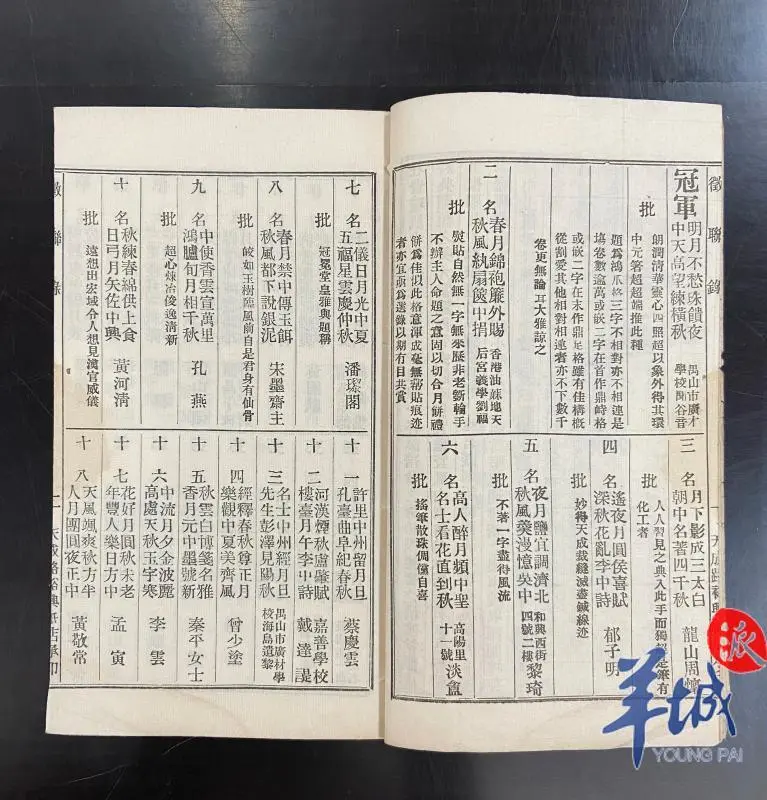 徵聯錄
冠軍
明月不愁珠饋夜
中天高望練橫秋
禺山市廣才
學校聞谷音
批
朗潤清華靈心四照超以象外得其環
中元箸超超端推此種
題為鴻爪格三字不相對亦不相連是
塲卷數逾萬或嵌二字在首作鼎峙格
或嵌二字在末作鼎足格雖有佳構概
從割愛其他相對相連者亦不下數千
卷更無論耳大雅諒之
二名
春月錦袍簾外賜
秋風紈扇篋中捐
香港油蔴地天
后宮義學劉福
批
熨貼自然無一字無來歷非老斲輪手
不辦主人命題之意固以切合月餅禮
餅為佳似此格意渾成毫無黏貼痕迹
者亦宜亟為選錄以期有目共賞
三名
月下影成三太白
朝中名著四千秋
龍山周
批
人人習見之典入此手而獨是筆有
化工者
四名
遙夜月圓侯喜賦
深秋花亂李中詩
郁子明
批
妙得天成裁縫滅盡鍼線迹
五名
夜月鹽宜調濟北
秋風羮漫憶吳中
和興西街
四號二樓
黎琦
批
不著一字盡得風流
六名
高人醉月頻中聖
名士看花直到秋
高陽里
十一號
淡盦
批
搖筆散珠倜儻自喜
七名
二儀日月光中夏
五福星雲慶仲秋
潘璨閣
批
冠冕堂皇雅與題稱
八名
春月禁中傳玉餌
秋風都下說銀泥
宋墨齋主
批
皎如玉樹臨風前自是君身有仙骨
九名
中使香雲宣萬里
鴻臚旬月相千秋
孔燕
批
超心煉冶俊逸清新
十名
秋練春綿供上食
日弓月矢佐中興
黃河清
批
遠想出宏域令人想見漢官威儀
徵聯錄
十一
許里中州留月旦
孔臺曲阜紀春秋
蔡慶雲
十二
河漢煙秋盧肇賦
樓臺月午李中詩
嘉善學校
戴達諟
十三
名士中州經月旦
先生彭澤見陽秋
禺山市廣材學
校海島遺黎
十四
經釋春秋尊正月
樂觀中夏美齊風
曾少塗
十五
秋雲白博箋名雅
香月元中墨號新
秦平女士
十六
中流月夕金波麗
高處天秋玉宇寒
李雲
十七
花好月圓秋未老
年豐人樂日方中
孟寅
十八
天風颯爽秋方半
人月團圓夜正中
黃敬常
二
天成路裕興紙店承印
羊城
派
YOUNG PAI